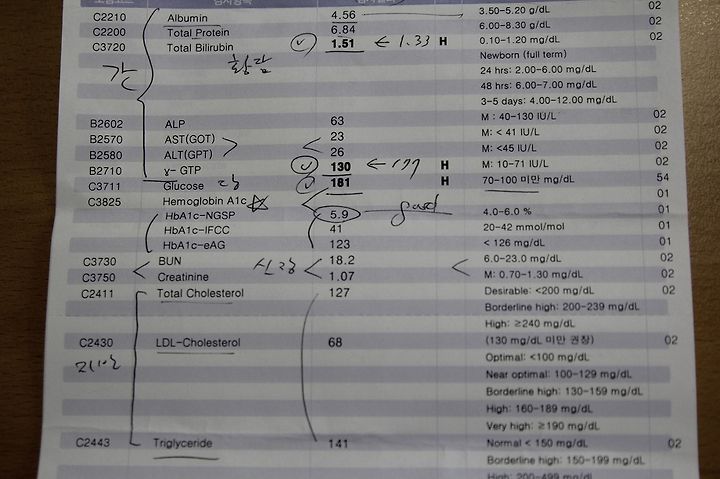 C2210 Albumin 4.56 3.50-5.20 g/dL 02
C2200 Total Protein 6.84 6.00-8.30 g/dL 02
C3720 Total Bilirubin 1.51 ← 1.33 H 0.10-1.20 mg/dL 02
간 황달 Newborn (full term)
24 hrs: 2.00-6.00 mg/dL
48 hrs: 6.00-7.00 mg/dL
3-5 days: 4.00-12.00 mg/dL
B2602 ALP 63 M: 40-130 IU/L 02
B2570 AST(GOT) 23 M: < 41 IU/L 02
B2580 ALT(GPT) 26 M: <45 IU/L 02
B2710 γ- GTP 130 ← H M: 10-71 IU/L 02
C3711 Glucose 당 181 H 70-100 미만 mg/dL 54
C3825 Hemoglobin A1c 01
HbA1c-NGSP 5.9 good 4.0-6.0 % 01
HbA1c-IFCC 41 20-42 mmol/mol 01
HbA1c-eAG 123 < 126 mg/dL 01
C3730 BUN 18.2 6.0-23.0 mg/dL 02
C3750 Creatinine 신장 1.07 M: 0.70-1.30 mg/dL 02
C2411 Total Cholesterol 127 Desirable: <200 mg/dL 02
Borderline high: 200-239 mg/dL
High: ≥240 mg/dL
C2430 LDL-Cholesterol 68 (130 mg/dL 미만 권장) 02
Optimal: <100 mg/dL
Near optimal: 100-129 mg/dL
Borderline high: 130-159 mg/dL
High: 160-189 mg/dL
Very high: ≥190 mg/dL
C2443 Triglyceride 141 Normal < 150 mg/dL 02
Borderline high: 150-199 mg/dL
High: 200-499 mg/dL